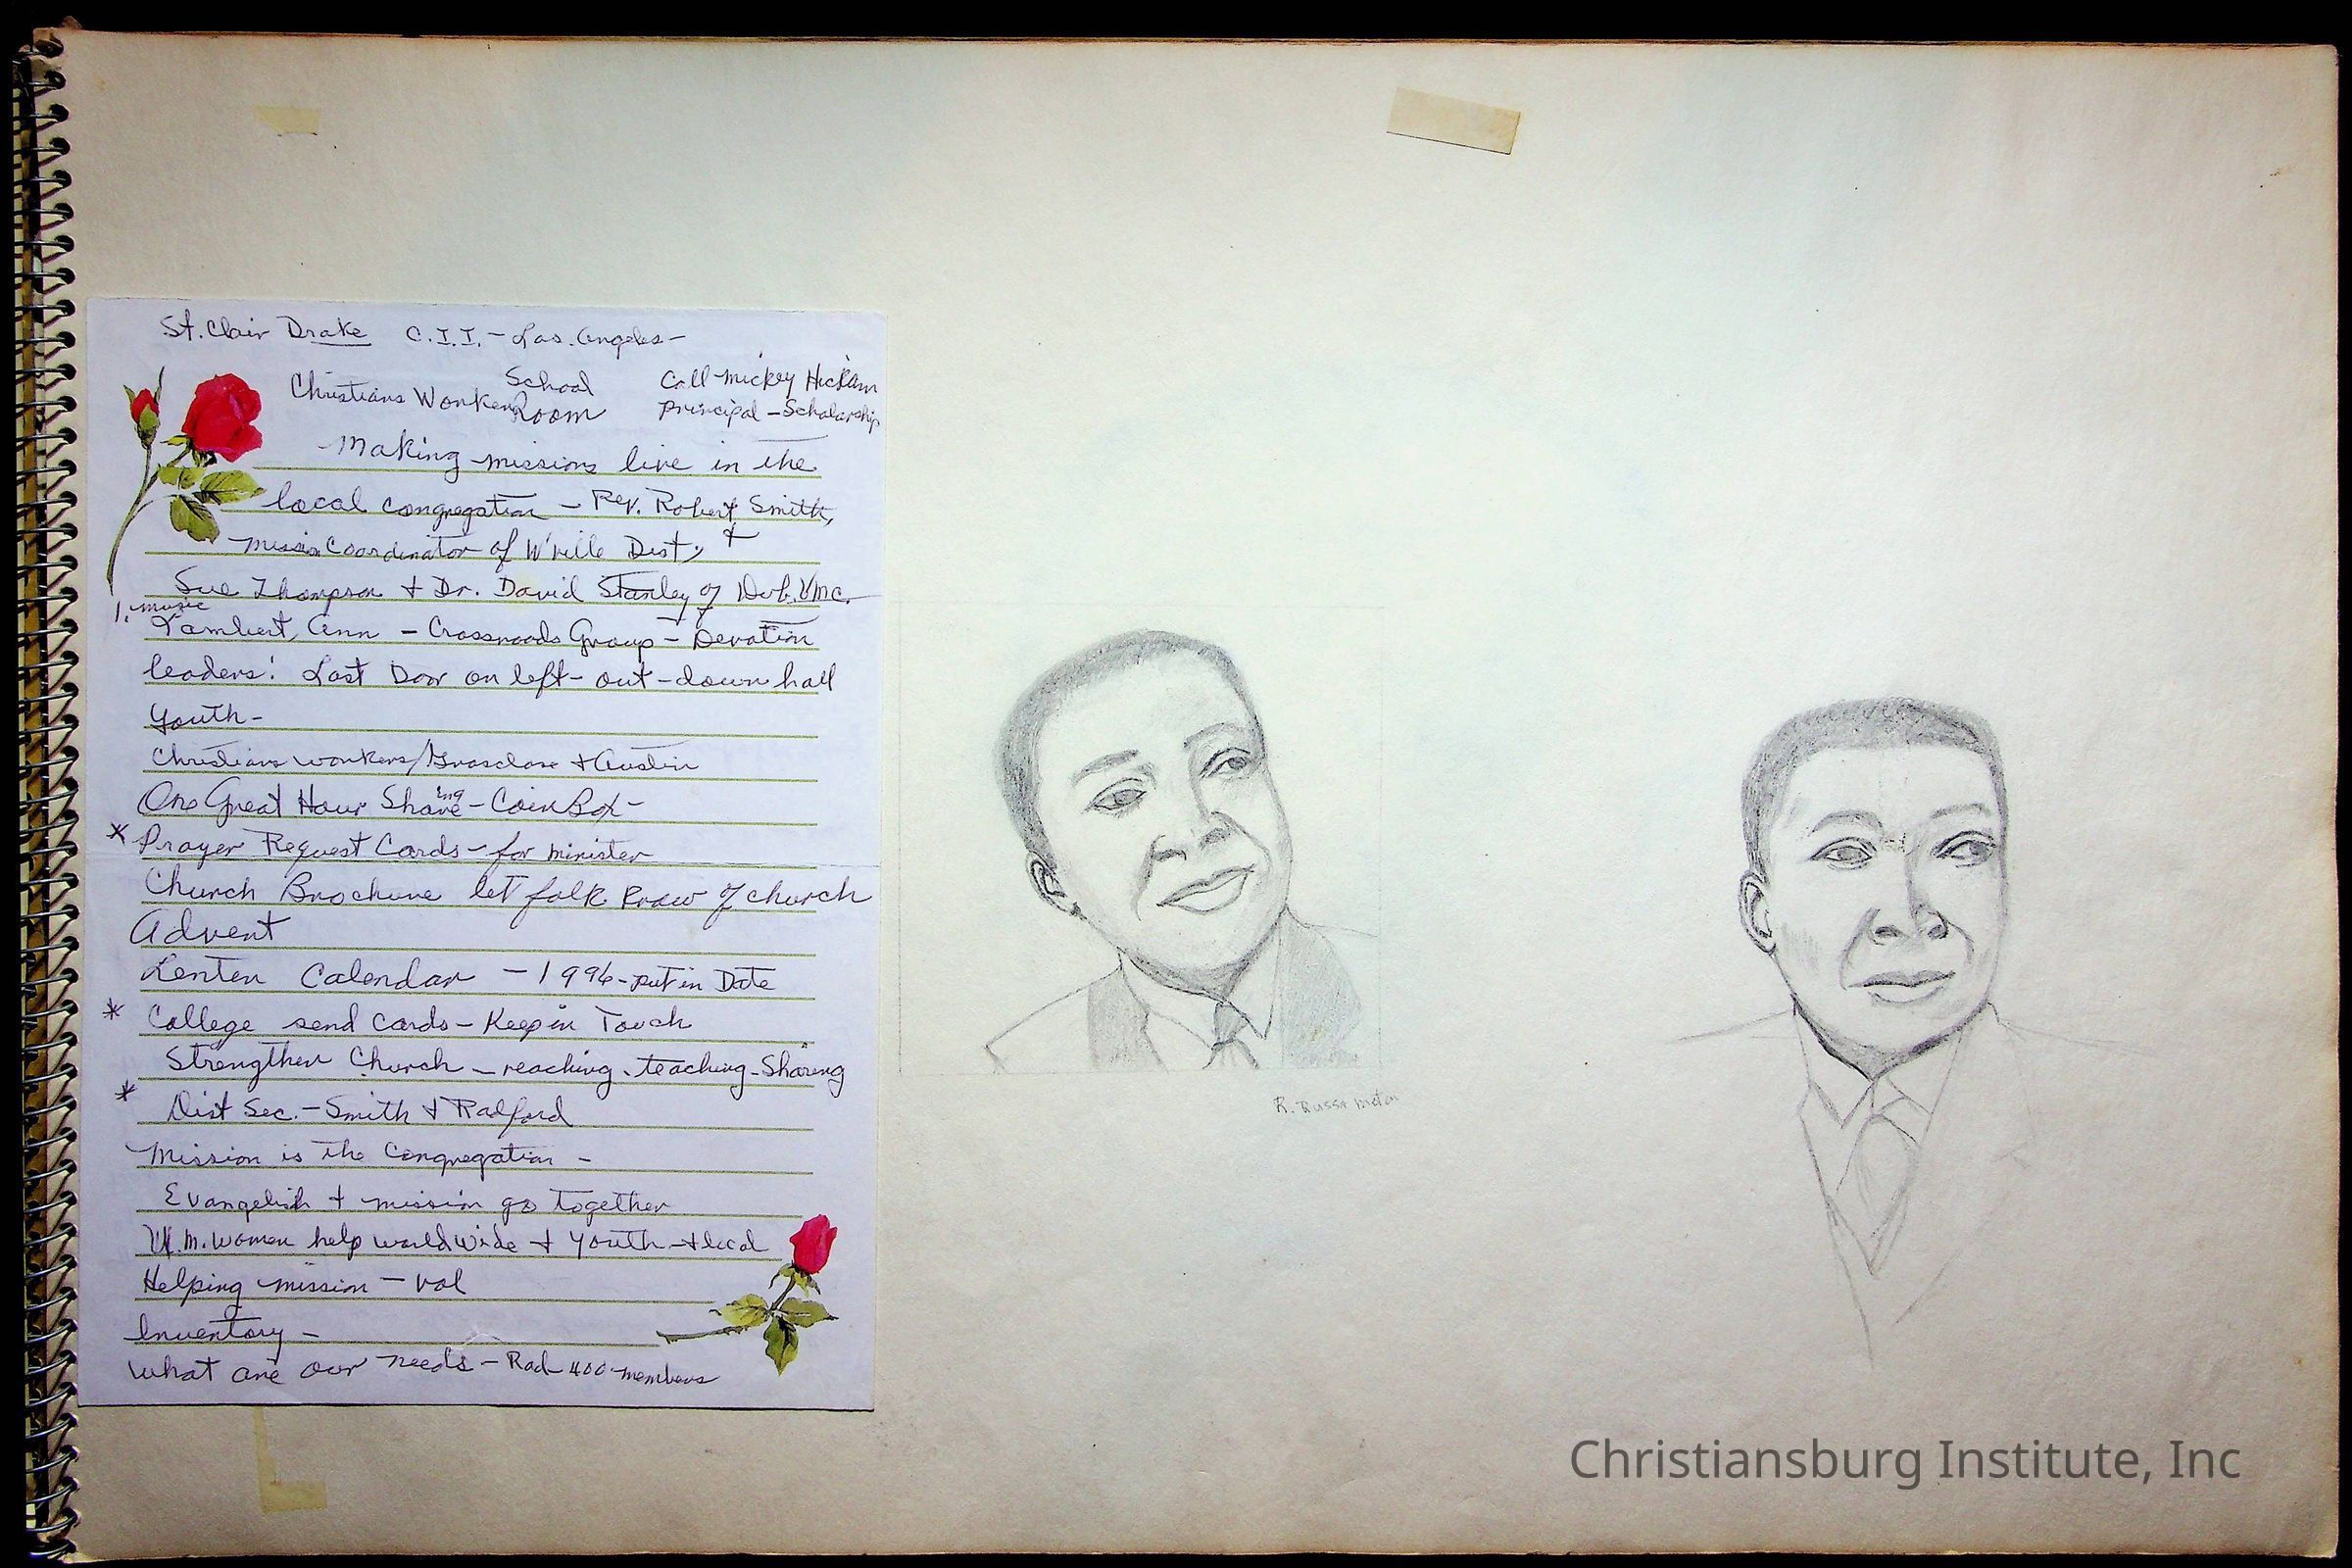 St. Clair Drake C.I.I. - Los. Angeles -
School
Christians Workers Room
Call Mickey Hickam
principal - Scholarship
- Making missions live in the
local congregation - Rev. Robert Smith,
Mission Coordinator of W'ville Dist, +
Sue Thompson + Dr. David Stanley of
1. music
Lambert, Ann - Crossroads Group - Devotion
leaders: Last Door on left - out - down hall
Youth -
Christians workers/Groseclose + Austin
One Great Hour Shareing - Coin Box -
* Prayer Request Cards - for minister
Church Brochure let folk know of church
Advent
Lenten Calendar - 1996 - put in Date
* College send cards - Keep in Touch
Strengthen Church - reaching - teaching - Sharing
* Dist Sec. - Smith & Radford
Mission is the Congregation -
+ mission go together
U.M. Women help worldwide + Youth - + local
Helping mission - vol
Inventory -
What are our needs - Rad - 400 - members
R. Russa Moton
Christiansburg Institute, Inc